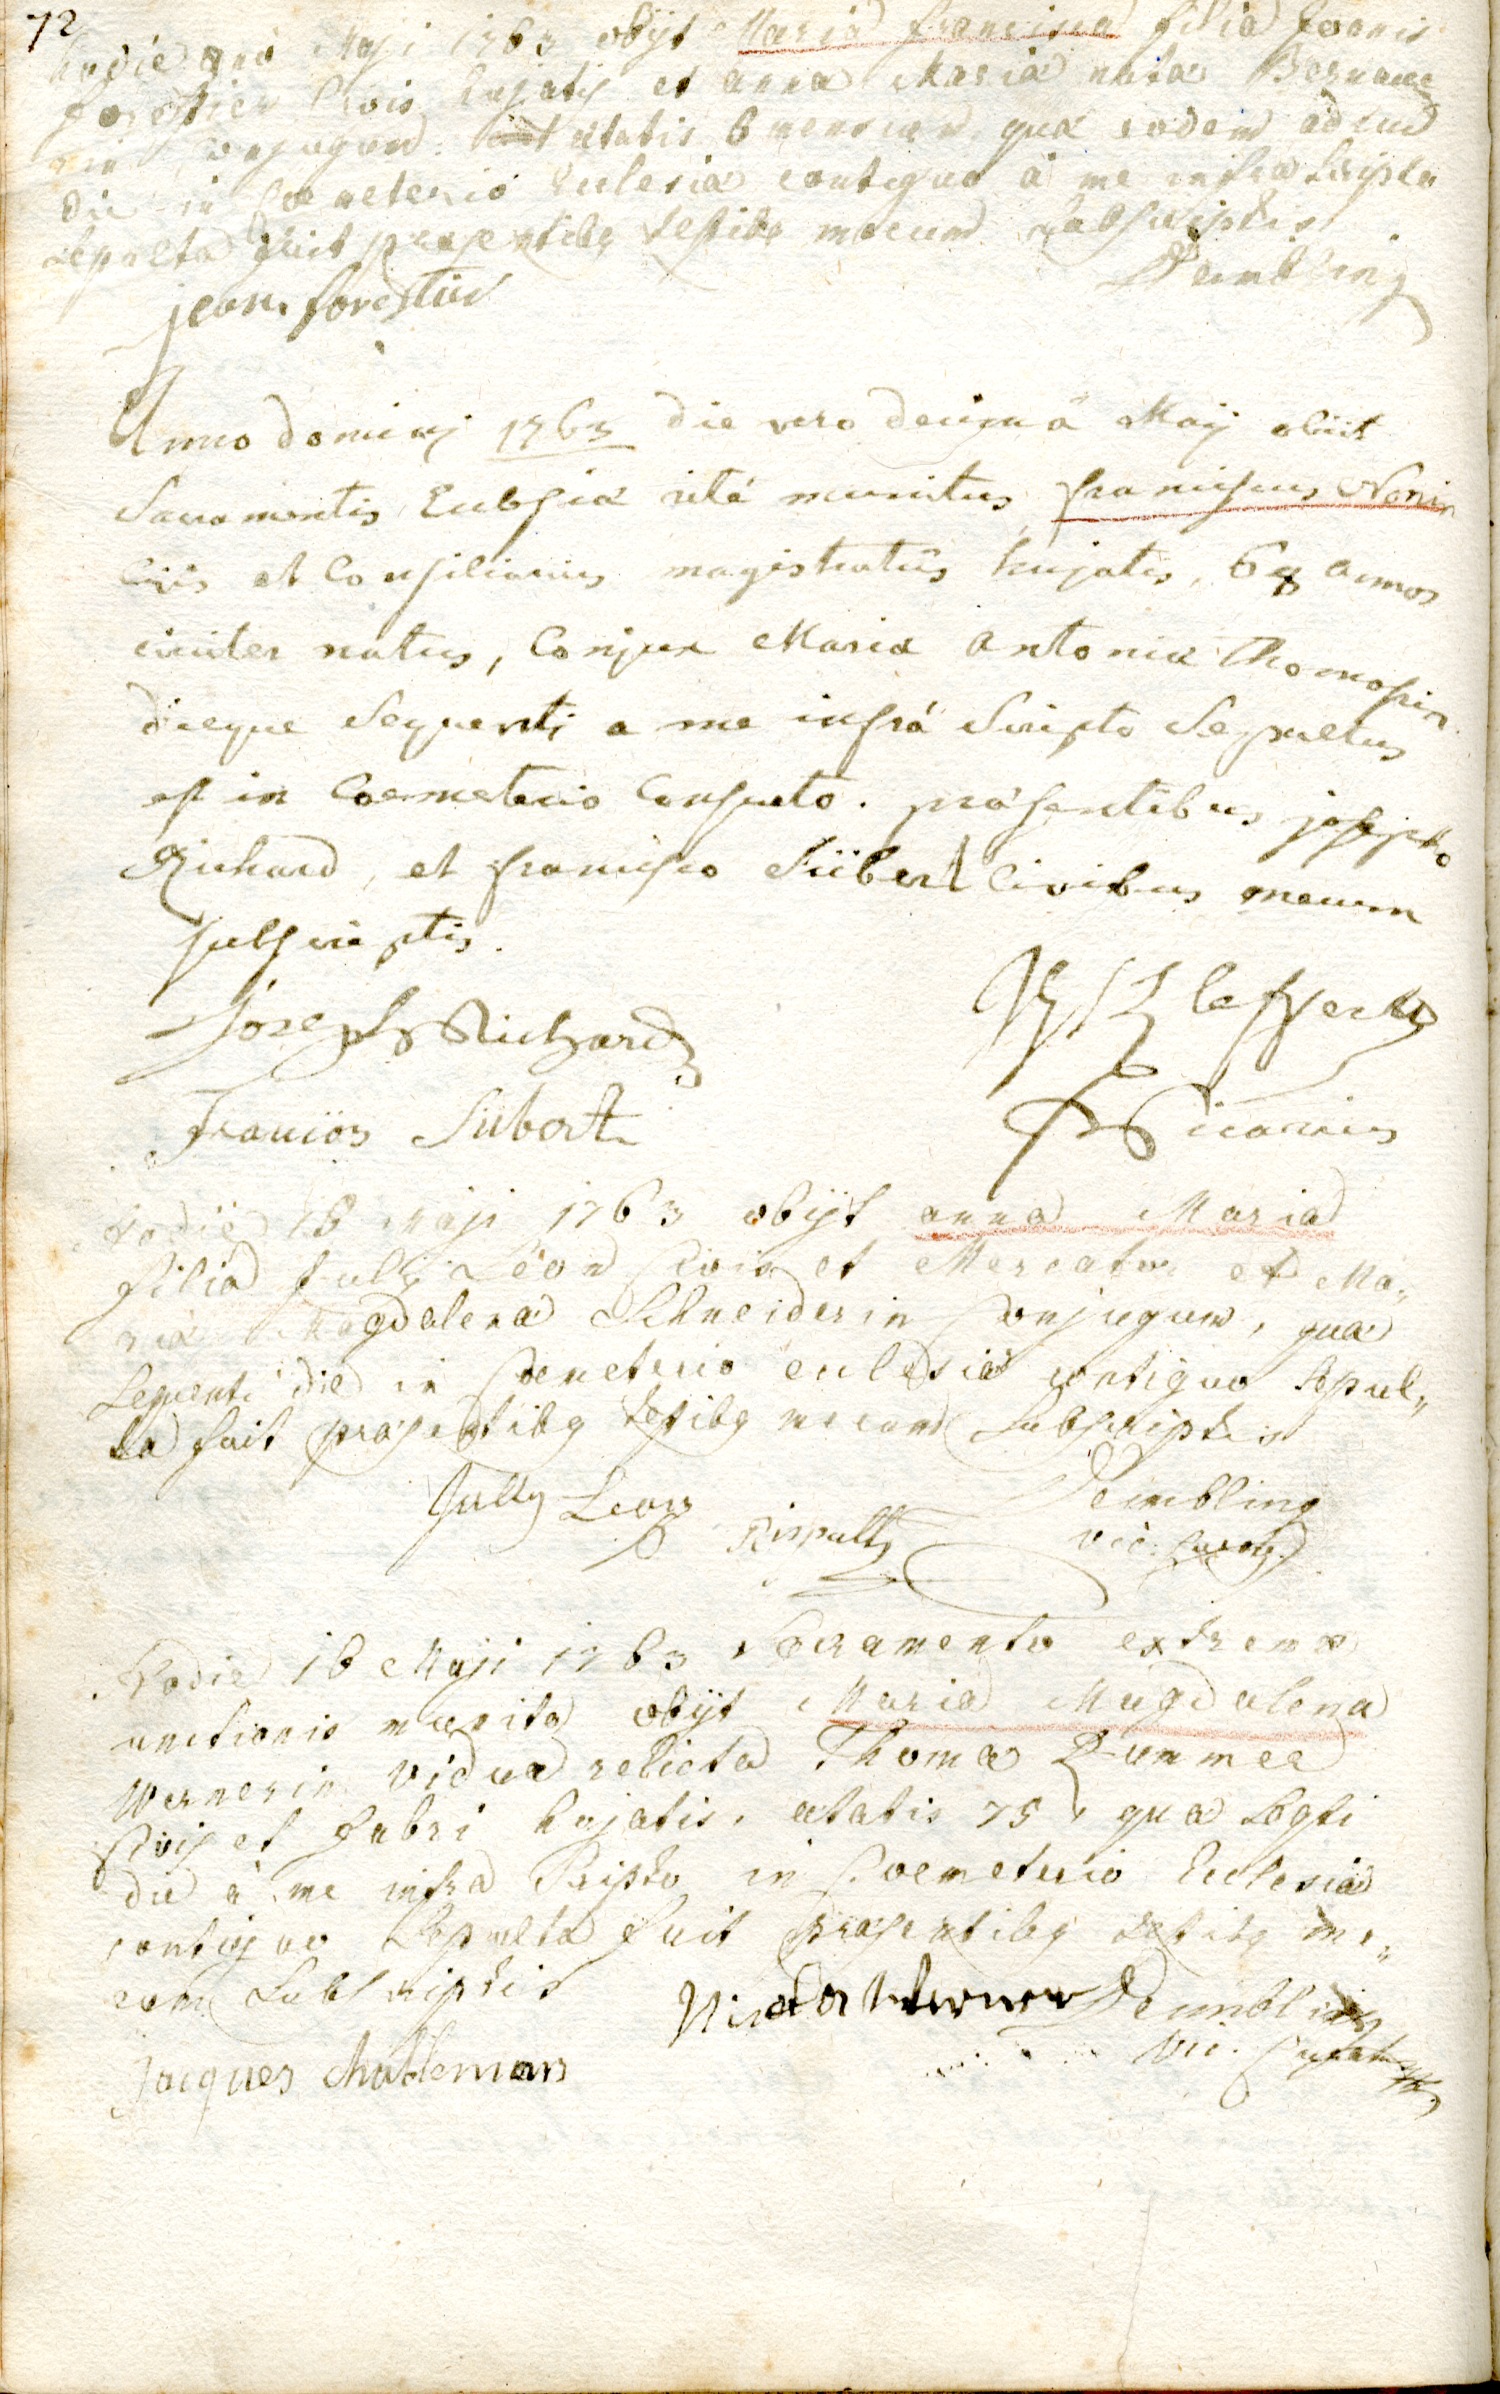 72
hodie Maji 1763 obijt Maria francisca filia Joanis
forestier Civis hujatis et anna Maria nata
conjugum ætatis 6 mensium quæ eodem
die in Coemeterio Ecclesiæ contiguo à me infra scripto
sepulta fuit præsentibq testibq mecum subscriptis
jean forestier Deimbling
Anno dominij 1763 die vero decimâ Maij obiit
Sacramentis Ecclesiæ ritè munitus franciscus Nonin
civis et Consiliarius magistratûs hujatis, annos
circiter natus, Conjux Mariæ Antoniæ Thomassin
dieque sequenti a me infrá scripto sepultus
est in Coemeterio Consueto. præsentibus josepho
Richard, et francisco Sübert Civibus mecum
subscriptis.
Joseph Richard
François Sübert Vicarius
hodie 16 Maji 1763 obijt anna Maria
filia July Léon Civis et Mercatoris et Ma„
riæ Magdalena Schneiderin Conjugum, quæ
sequenti die in Coemeterio ecclesiæ contiguo sepul„
ta fuit præsentibq testibq mecum subscriptis
Jully Leon Deimbling
vic.
Hodie 16 Maji 1763 Sacramento extremæ
unctionis munita obijt Maria Magdalena
Wernerin vidua relicta Thomæ
Civis et fabri hujatis, ætatis 75, quæ seqti
die à me infra scripto in Coemeterio Ecclesiæ
contiguo sepulta fuit præsentibq testibq me„
cum subscriptis Werner Deimbling
Jacques vic.